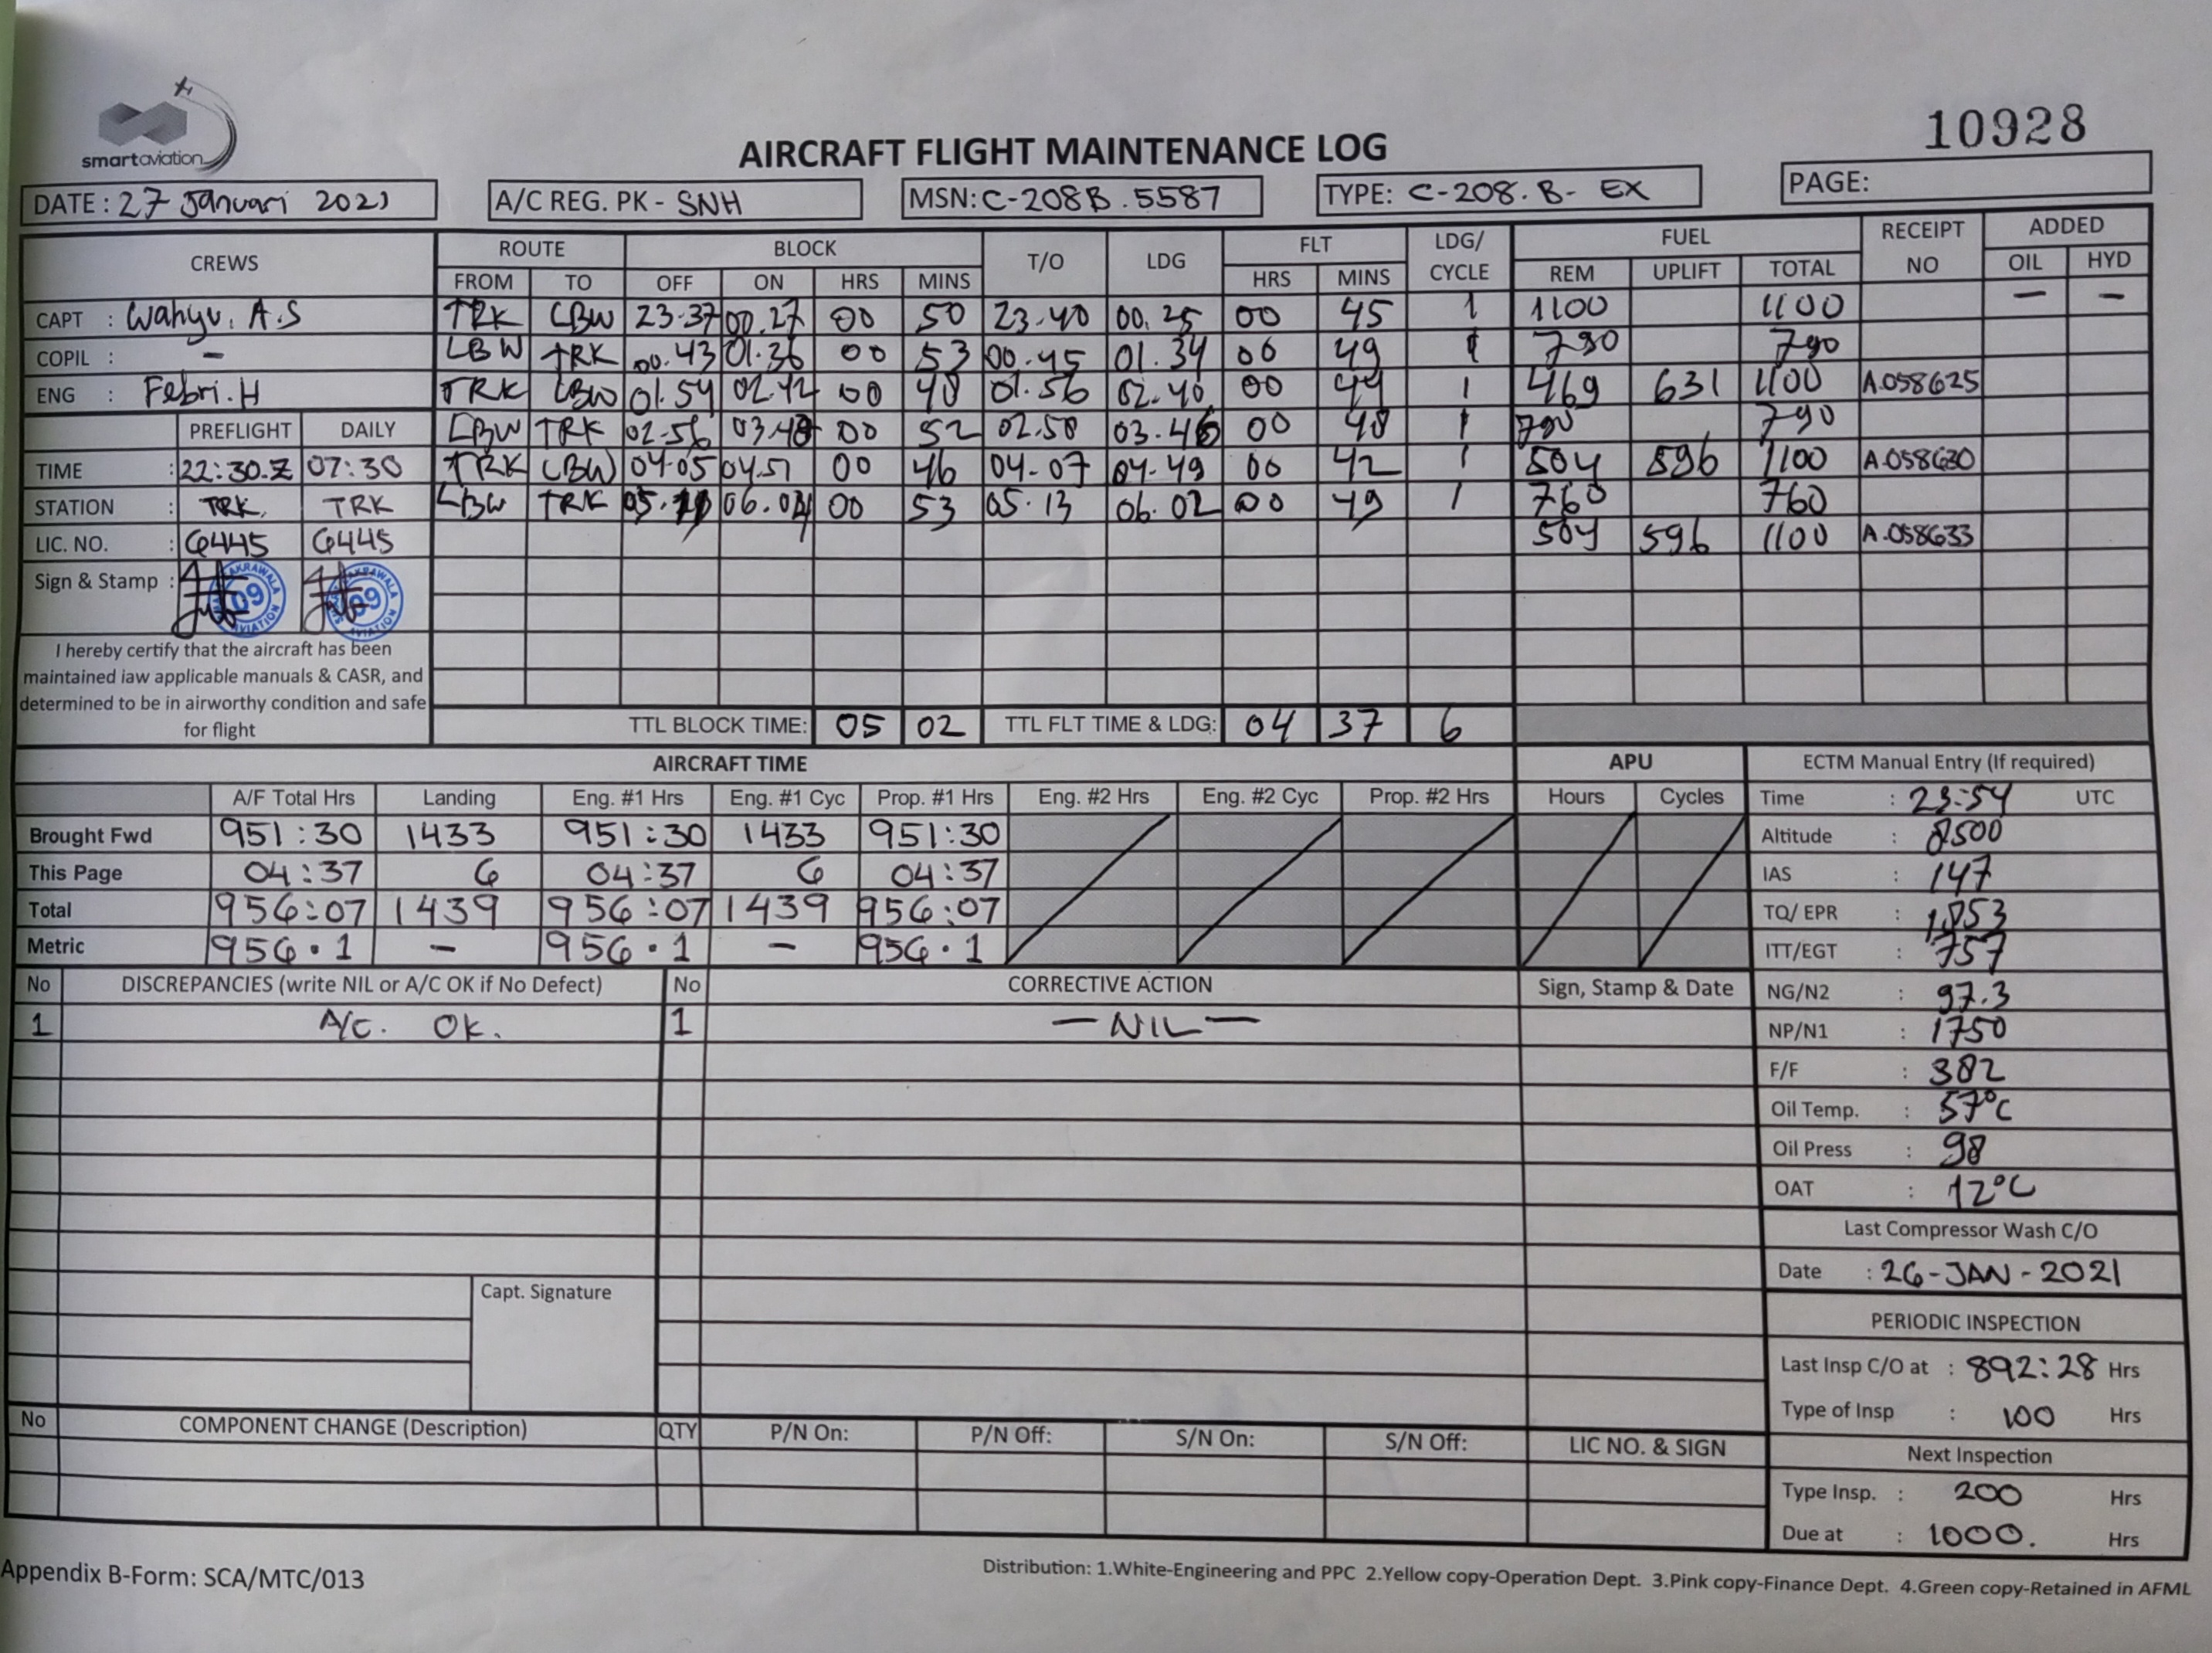 smartaviation
10928
AIRCRAFT FLIGHT MAINTENANCE LOG
DATE : 27 Januari 2021 A/C REG. PK - SNH MSN: C-208B.5587 TYPE: C-208.B- EX PAGE:
CREWS ROUTE BLOCK T/O LDG FLT LDG/ CYCLE FUEL RECEIPT NO ADDED
FROM TO OFF ON HRS MINS HRS MINS REM UPLIFT TOTAL OIL HYD
CAPT : Wahyu. A.S TRK LBW 23.37 00.27 00 50 23.40 00.25 00 45 1 1100 1100 — —
COPIL : - LBW TRK 00.43 01.36 00 53 00.45 01.34 00 49 1 790 790
ENG : Febri.H TRK LBW 01.54 02.42 00 48 01.56 02.40 00 44 1 469 631 1100 A.058625
PREFLIGHT DAILY LBW TRK 02.56 03.48 00 52 02.58 03.46 00 48 1 790 790
TIME : 22:30.Z 07:30 TRK LBW 04.05 04.51 00 46 04.07 04.49 00 42 1 504 596 1100 A.058630
STATION : TRK. TRK LBW TRK 05.11 06.04 00 53 05.13 06.02 00 49 1 760 760
LIC. NO. : 6445 6445 504 596 1100 A.058633
Sign & Stamp : 09 AVIATION 09 AVIATION
I hereby certify that the aircraft has been
maintained iaw applicable manuals & CASR, and
determined to be in airworthy condition and safe
for flight
TTL BLOCK TIME: 05 02 TTL FLT TIME & LDG: 04 37 6
AIRCRAFT TIME APU ECTM Manual Entry (If required)
A/F Total Hrs Landing Eng. #1 Hrs Eng. #1 Cyc Prop. #1 Hrs Eng. #2 Hrs Eng. #2 Cyc Prop. #2 Hrs Hours Cycles Time : 23:54 UTC
Brought Fwd 951:30 1433 951:30 1433 951:30 Altitude : 8500
This Page 04:37 6 04:37 6 04:37 IAS : 147
Total 956:07 1439 956:07 1439 956:07 TQ/ EPR : 1,053
Metric 956.1 - 956.1 - 956.1 ITT/EGT : 757
No DISCREPANCIES (write NIL or A/C OK if No Defect) No CORRECTIVE ACTION Sign, Stamp & Date NG/N2 : 97.3
1 A/C. OK. 1 —NIL— NP/N1 : 1750
F/F : 382
Oil Temp. : 57°C
Oil Press : 98
OAT : 12°C
Last Compressor Wash C/O
Date : 26-JAN-2021
Capt. Signature
PERIODIC INSPECTION
Last Insp C/O at : 892:28 Hrs
Type of Insp : 100 Hrs
No COMPONENT CHANGE (Description) QTY P/N On: P/N Off: S/N On: S/N Off: LIC NO. & SIGN
Next Inspection
Type Insp. : 200 Hrs
Due at : 1000. Hrs
Appendix B-Form: SCA/MTC/013
Distribution: 1.White-Engineering and PPC 2.Yellow copy-Operation Dept. 3.Pink copy-Finance Dept. 4.Green copy-Retained in AFML